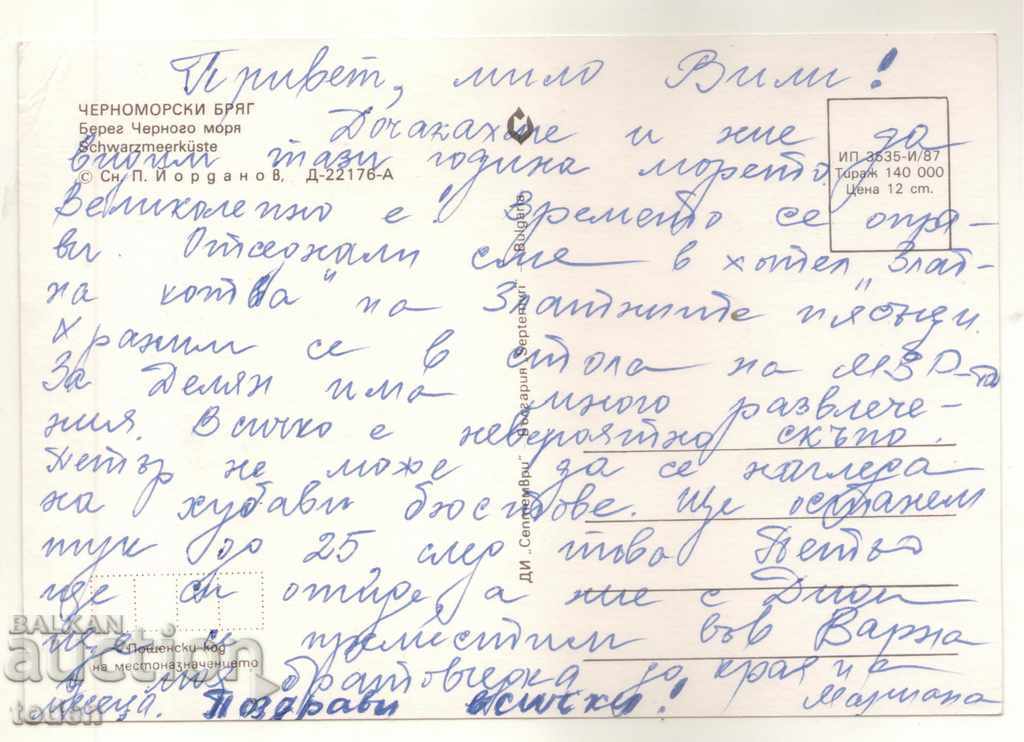 Привет, мило Вили!
ЧЕРНОМОРСКИ БРЯГ
Берег Черного моря
Schwarzmeerküste
© Сн. П. Йорданов, Д-22176-А
ИП 3535-И/87
Тираж 140 000
Цена 12 ст.
Дочакахме и ние да
видим тази година морето
Великолепно е! Времето се опра-
ви. Отседнали сме в хотел "Злат-
на котва" на Златните пясъци.
Храним се в стола на МВР-то
За Делян има много развлече-
ния. Всичко е невероятно скъпо.
Петър не може да се нагледа
на хубави бюстове. Ще останем
тук до 25 след това Петьо
ще си отиде а ние с
ще се преместим във Варна
братовчедка до края на
месеца. Поздрави всички!
Мариана
ДИ „Септември" България „Septemvri" Bulgaria
Пощенски код
на местоназначението
BALKAN
auction